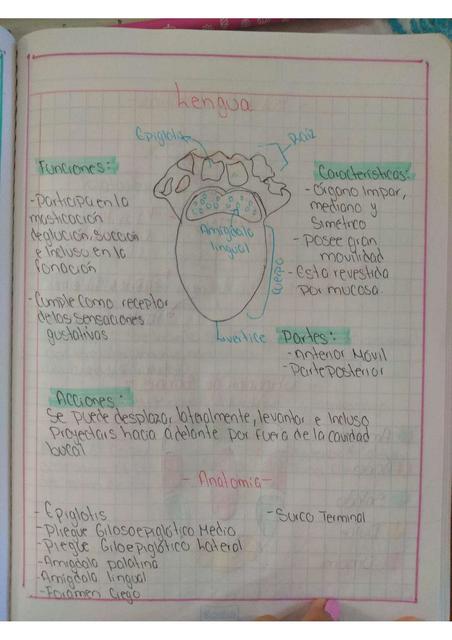 Lengua
Epiglotis
Raíz
Funciones:
- Participa en la
masticación
deglución, succión
e incluso en la
fonación
- Cumple como receptor
de las sensaciones
gustativas
Amigdala
lingual
Cuerpo
Vertice
Características:
- Órgano Impar,
mediano y
Simétrico
- Posee gran
movilidad
- Esta revestida
por mucosa.
Partes:
- Anterior Móvil
- Parte Posterior
Acciones:
Se puede desplazar lateralmente, levantar e Incluso
Proyectars hacia adelante por fuera de la cavidad
bucal
- Anatomia -
- Epiglotis
- Pliegue Glosoepiglótico Medio
- Pliegue Gloepiglótico Lateral
- Amigdala palatina
- Amigdala lingual
- Foramen Ciego
- Surco Terminal